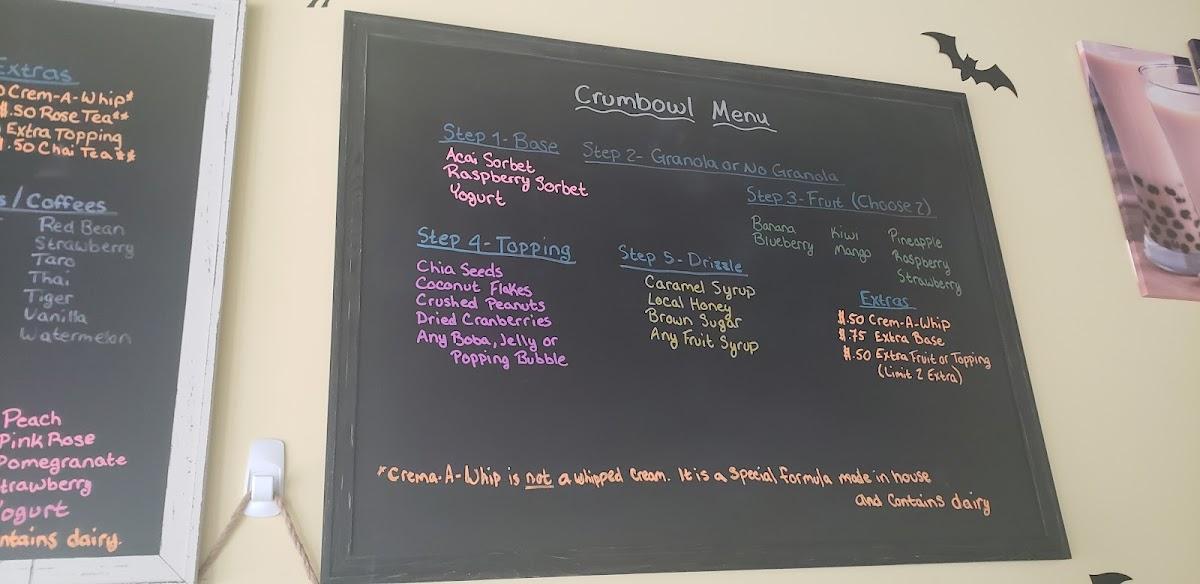 Extras
Crem-A-Whip*
$.50 Rose Tea**
Extra Topping
.50 Chai Tea**
s/Coffees
Red Bean
Strawberry
Taro
Thai
Tiger
Vanilla
Watermelon
Peach
Pink Rose
Pomegranate
trawberry
ogurt
ntains dairy.
Crumbowl Menu
Step 1-Base
Acai Sorbet
Raspberry Sorbet
Yogurt
Step 2- Granola or No Granola
Step 3-Fruit (Choose 2)
Banana Kiwi Pineapple
Blueberry Mango Raspberry
Strawberry
Step 4-Topping
Chia Seeds
Coconut Flakes
Crushed Peanuts
Dried Cranberries
Any Boba, Jelly or
Popping Bubble
Step 5-Drizzle
Caramel Syrup
Local Honey
Brown Sugar
Any Fruit Syrup
Extras
$.50 Crem-A-Whip
$.75 Extra Base
$.50 Extra Fruit or Topping
(Limit 2 Extra)
*Crema-A-Whip is not a whipped cream. It is a special formula made in house
and contains dairy